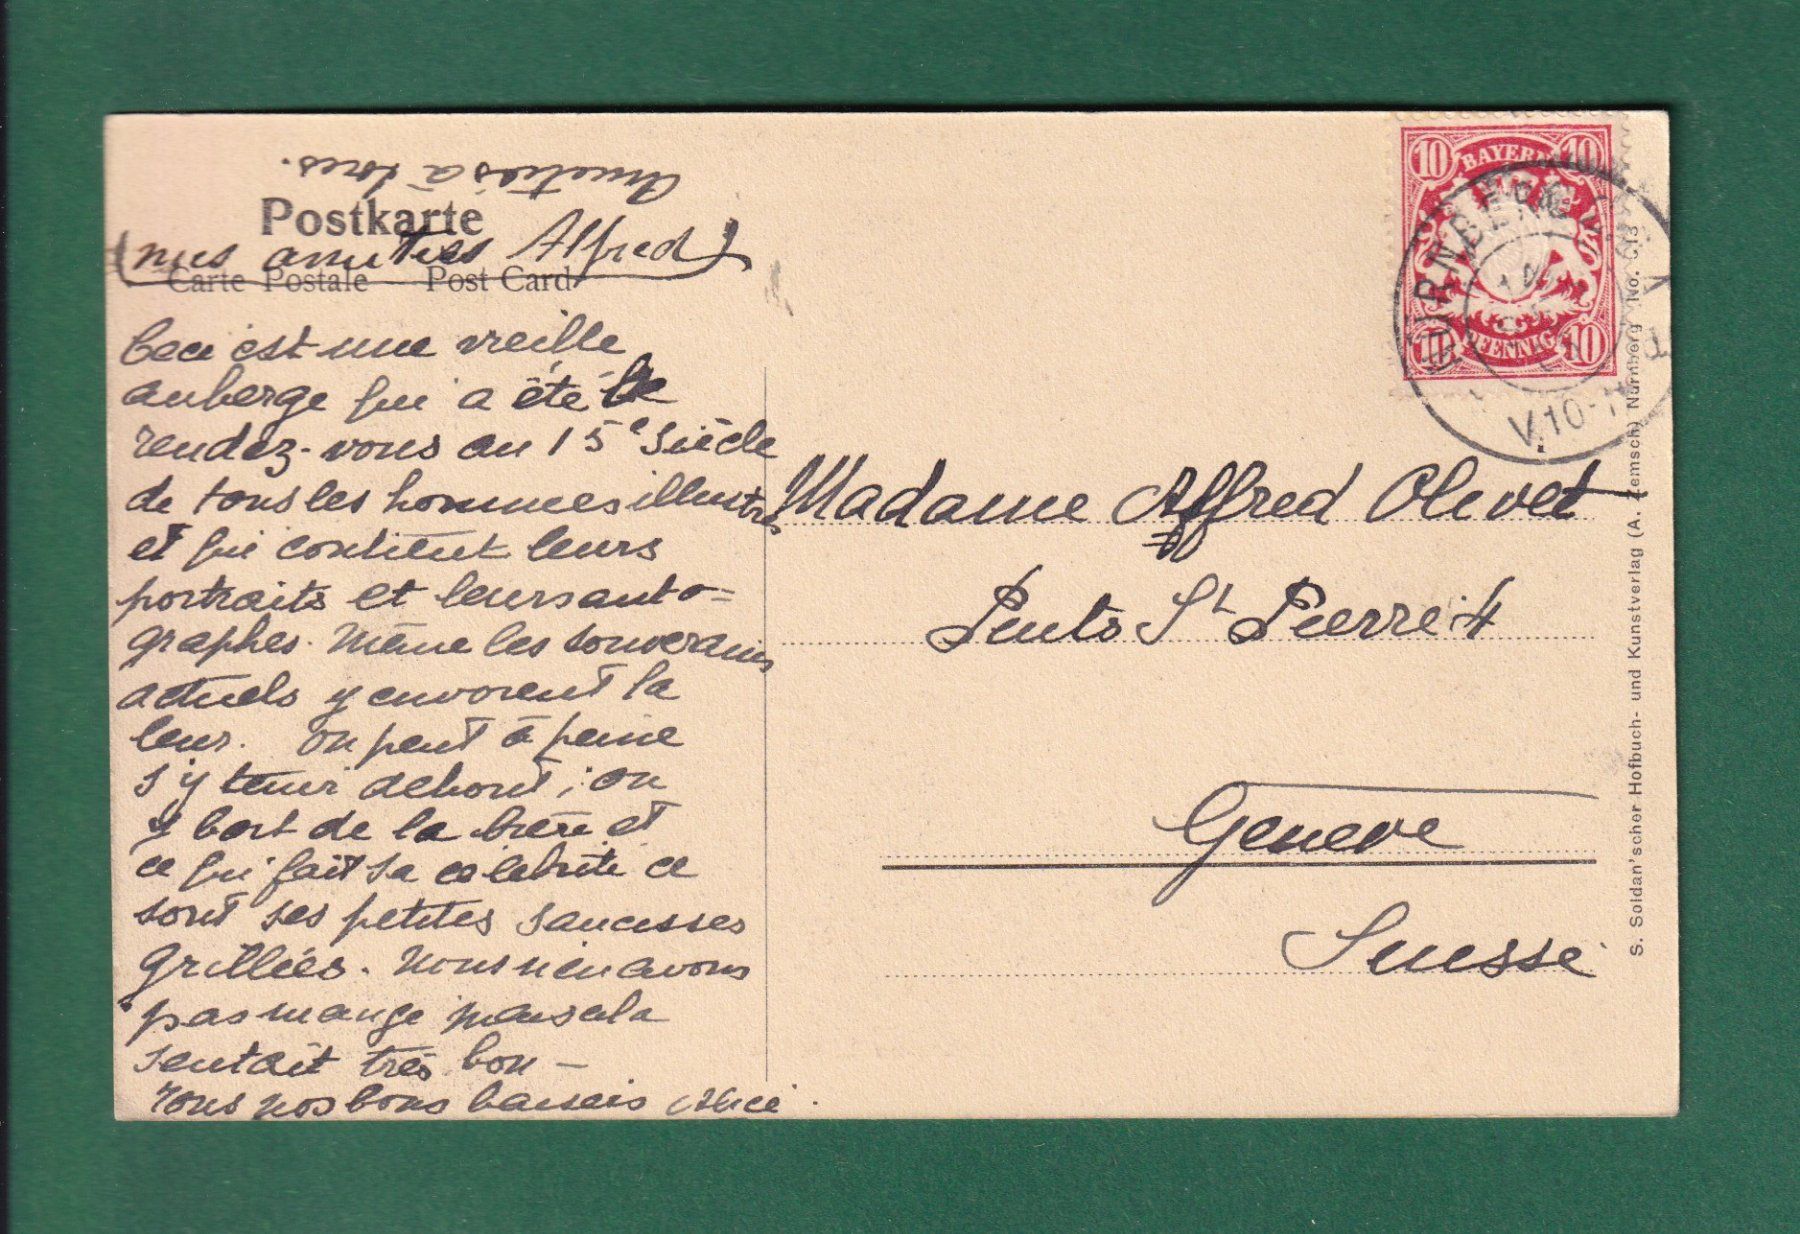 Amitiés à tous.
Postkarte
mes amitiés Alfred
Carte Postale Post Card
Ceci est une vieille
auberge qui a été le
rendez-vous au 15e siècle
de tous les hommes illustres
et qui contient leurs
portraits et leurs auto=
graphes. Même les souverains
actuels y envoient la
leur. On peut à peine
s'y tenir debout; on
y boit de la bière et
ce qui fait sa célébrité ce
sont ses petites saucisses
grillées. Nous n'en avons
pas mangé mais cela
sentait très bon —
Tous nos bons baisers Alice.
BAYERN
10 10
10 10
PFENNIG
NÜRNBERG
V.10-11
Madame Alfred Olivet
Puits St Pierre 4
Genève
Suisse
S. Soldan'scher Hofbuch- und Kunstverlag (A. Zemsch) Nürnberg No. C13